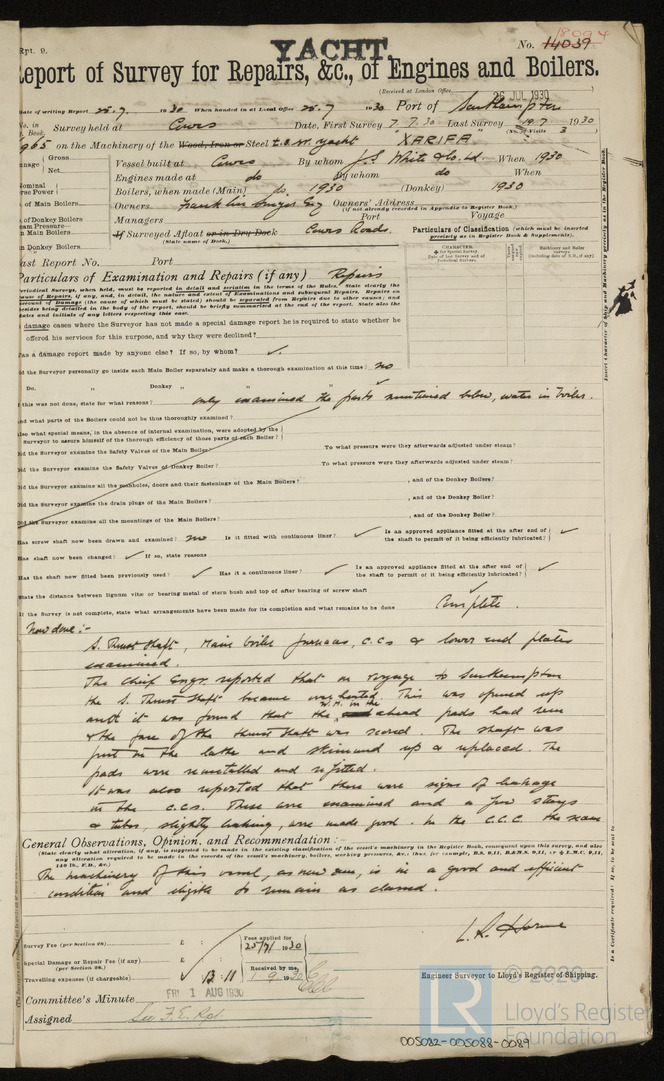 Rpt. 9.
YACHT.
No. 14039
Report of Survey for Repairs, &c., of Engines and Boilers.
(Received at London Office
26 JUL 1930
Date of writing Report 25.7. 1930 When handed in at Local Office 25.7 1930 Port of Southampton
No. in Book. Survey held at Cowes Date, First Survey 7.7.30 Last Survey 19.7 1930
(No. of Visits 3)
965 on the Machinery of the Wood, Iron or Steel t.s. M. yacht "XARIFA"
Gross
Net
Vessel built at Cowes By whom J.S. White & Co. Ld. When 1930
Engines made at do By whom do When
Nominal Horse Power
Boilers, when made (Main) do. 1930 (Donkey) 1930
No. of Main Boilers
Owners Franklin Singer Esq Owners' Address
(if not already recorded in Appendix to Register Book.)
No. of Donkey Boilers
Managers Port Voyage
Steam Pressure in Main Boilers
If Surveyed Afloat or in Dry Dock Cowes Roads.
(State name of Dock.)
Particulars of Classification (which must be inserted precisely as in Register Book & Supplements).
in Donkey Boilers
Last Report No. Port
Particulars of Examination and Repairs (if any) Repairs
damage cases where the Surveyor has not made a special damage report he is required to state whether he
offered his services for this purpose, and why they were declined?
Was a damage report made by anyone else? If so, by whom? ✓.
Did the Surveyor personally go inside each Main Boiler separately and make a thorough examination at this time? no
Do. " Donkey " " "
If this was not done, state for what reasons? only examined the parts mentioned below, water in boiler.
And what parts of the Boilers could not be thus thoroughly examined?
Also what special means, in the absence of internal examination, were adopted by the
Surveyor to assure himself of the thorough efficiency of those parts of each Boiler?
Did the Surveyor examine the Safety Valves of the Main Boiler? To what pressure were they afterwards adjusted under steam?
Did the Surveyor examine the Safety Valves of Donkey Boiler? To what pressure were they afterwards adjusted under steam?
Did the Surveyor examine all the manholes, doors and their fastenings of the Main Boilers? , and of the Donkey Boilers?
Did the Surveyor examine the drain plugs of the Main Boilers? , and of the Donkey Boiler?
Did the Surveyor examine all the mountings of the Main Boilers? , and of the Donkey Boiler?
Has screw shaft now been drawn and examined? no Is it fitted with continuous liner? ✓ Is an approved appliance fitted at the after end of the shaft to permit of it being efficiently lubricated? ✓
Has shaft now been changed? ✓ If so, state reasons
Has the shaft now fitted been previously used? ✓ Has it a continuous liner? ✓ Is an approved appliance fitted at the after end of the shaft to permit of it being efficiently lubricated? ✓
State the distance between lignum vitæ or bearing metal of stern bush and top of after bearing of screw shaft ✓
If the Survey is not complete, state what arrangements have been made for its completion and what remains to be done Complete.
Now done:-
S. Thrust Shaft, Main boiler furnaces, C.Cs & lower end plates
examined.
The Chief Engr. reported that on voyage to Southampton
the S. Thrust Shaft became over heated. This was opened up
and it was found that the W.M. in the ahead pads had run
& the face of the thrust shaft was scored. The shaft was
put in the lathe and skimmed up & replaced. The
pads were remetalled and refitted.
It was also reported that there were signs of leakage
in the C.Cs. These were examined and a few stays
& tubes, slightly leaking, were made good. In the C.C.C. the same
General Observations, Opinion, and Recommendation:-
(State clearly what alteration, if any, is suggested to be made in the existing classification of the vessel's machinery in the Register Book, consequent upon this survey, and also
any alteration required to be made in the records of the vessel's machinery, boilers, working pressures, &c.; thus, for example, B.S. 9,11, B.&M.S. 9,11, or L.M.C. 9,11,
140 lb., F.D., &c.)
The machinery of this vessel, as now seen, is in a good and efficient
condition and eligible to remain as classed.
Survey Fee (per Section 28) £ : :
Special Damage or Repair Fee (if any) (per Section 28.) £ : :
Travelling expenses (if chargeable) £ 13 : 11
Fees applied for
25/7/1930
Received by me,
1.9.1930
L. R. Horne
Engineer Surveyor to Lloyd's Register of Shipping.
Committee's Minute FRI 1 AUG 1930
Assigned See F.E. Rpt.
© 2020
LR
Lloyd's Register
Foundation
005082-005088-0089